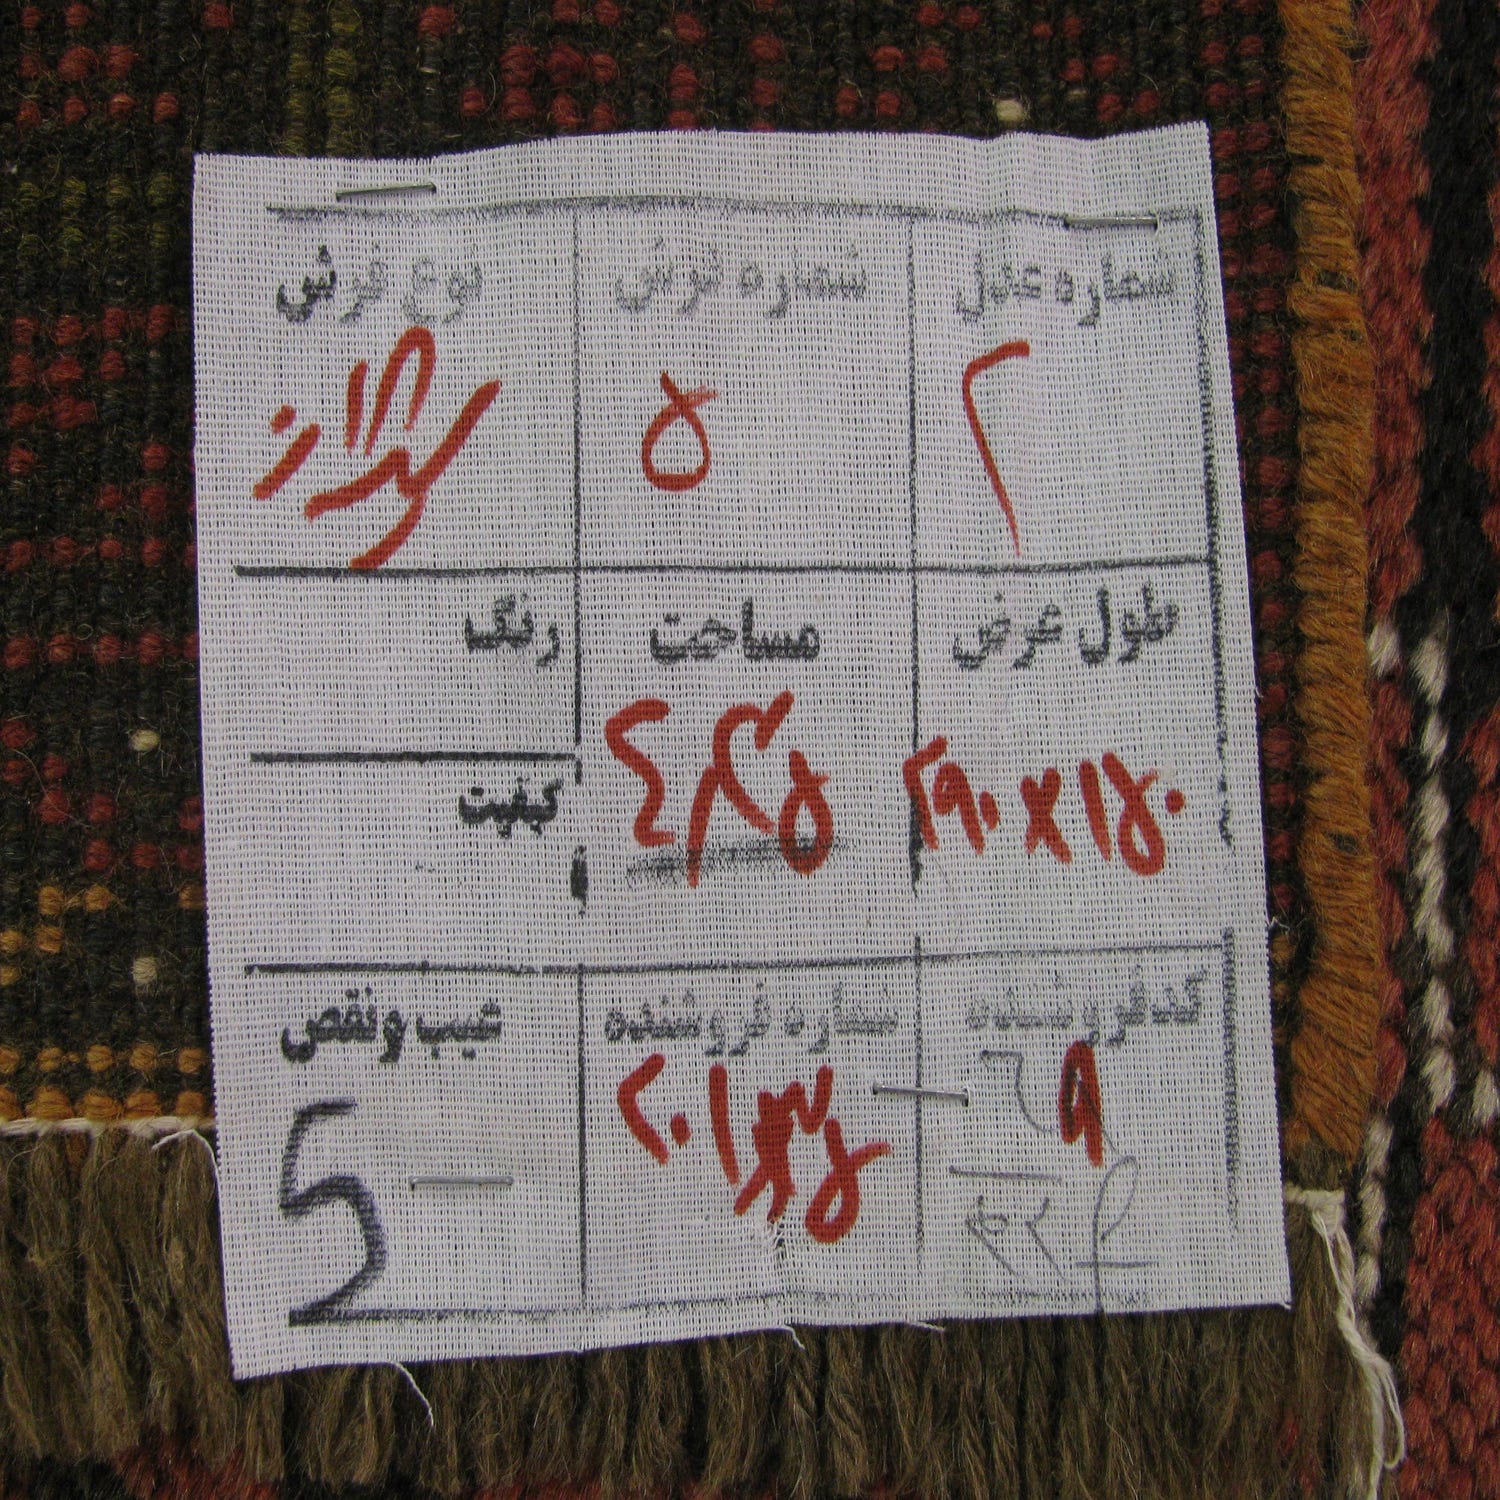 شماره عدل شماره فرش نوع فرش
۲ ۵ شیراز
طول عرض مساحت رنگ
۲۹۰×۱۵۰ ٤/۳۵
کیفیت
کدفروشنده شماره فروشنده عیب ونقص
۹